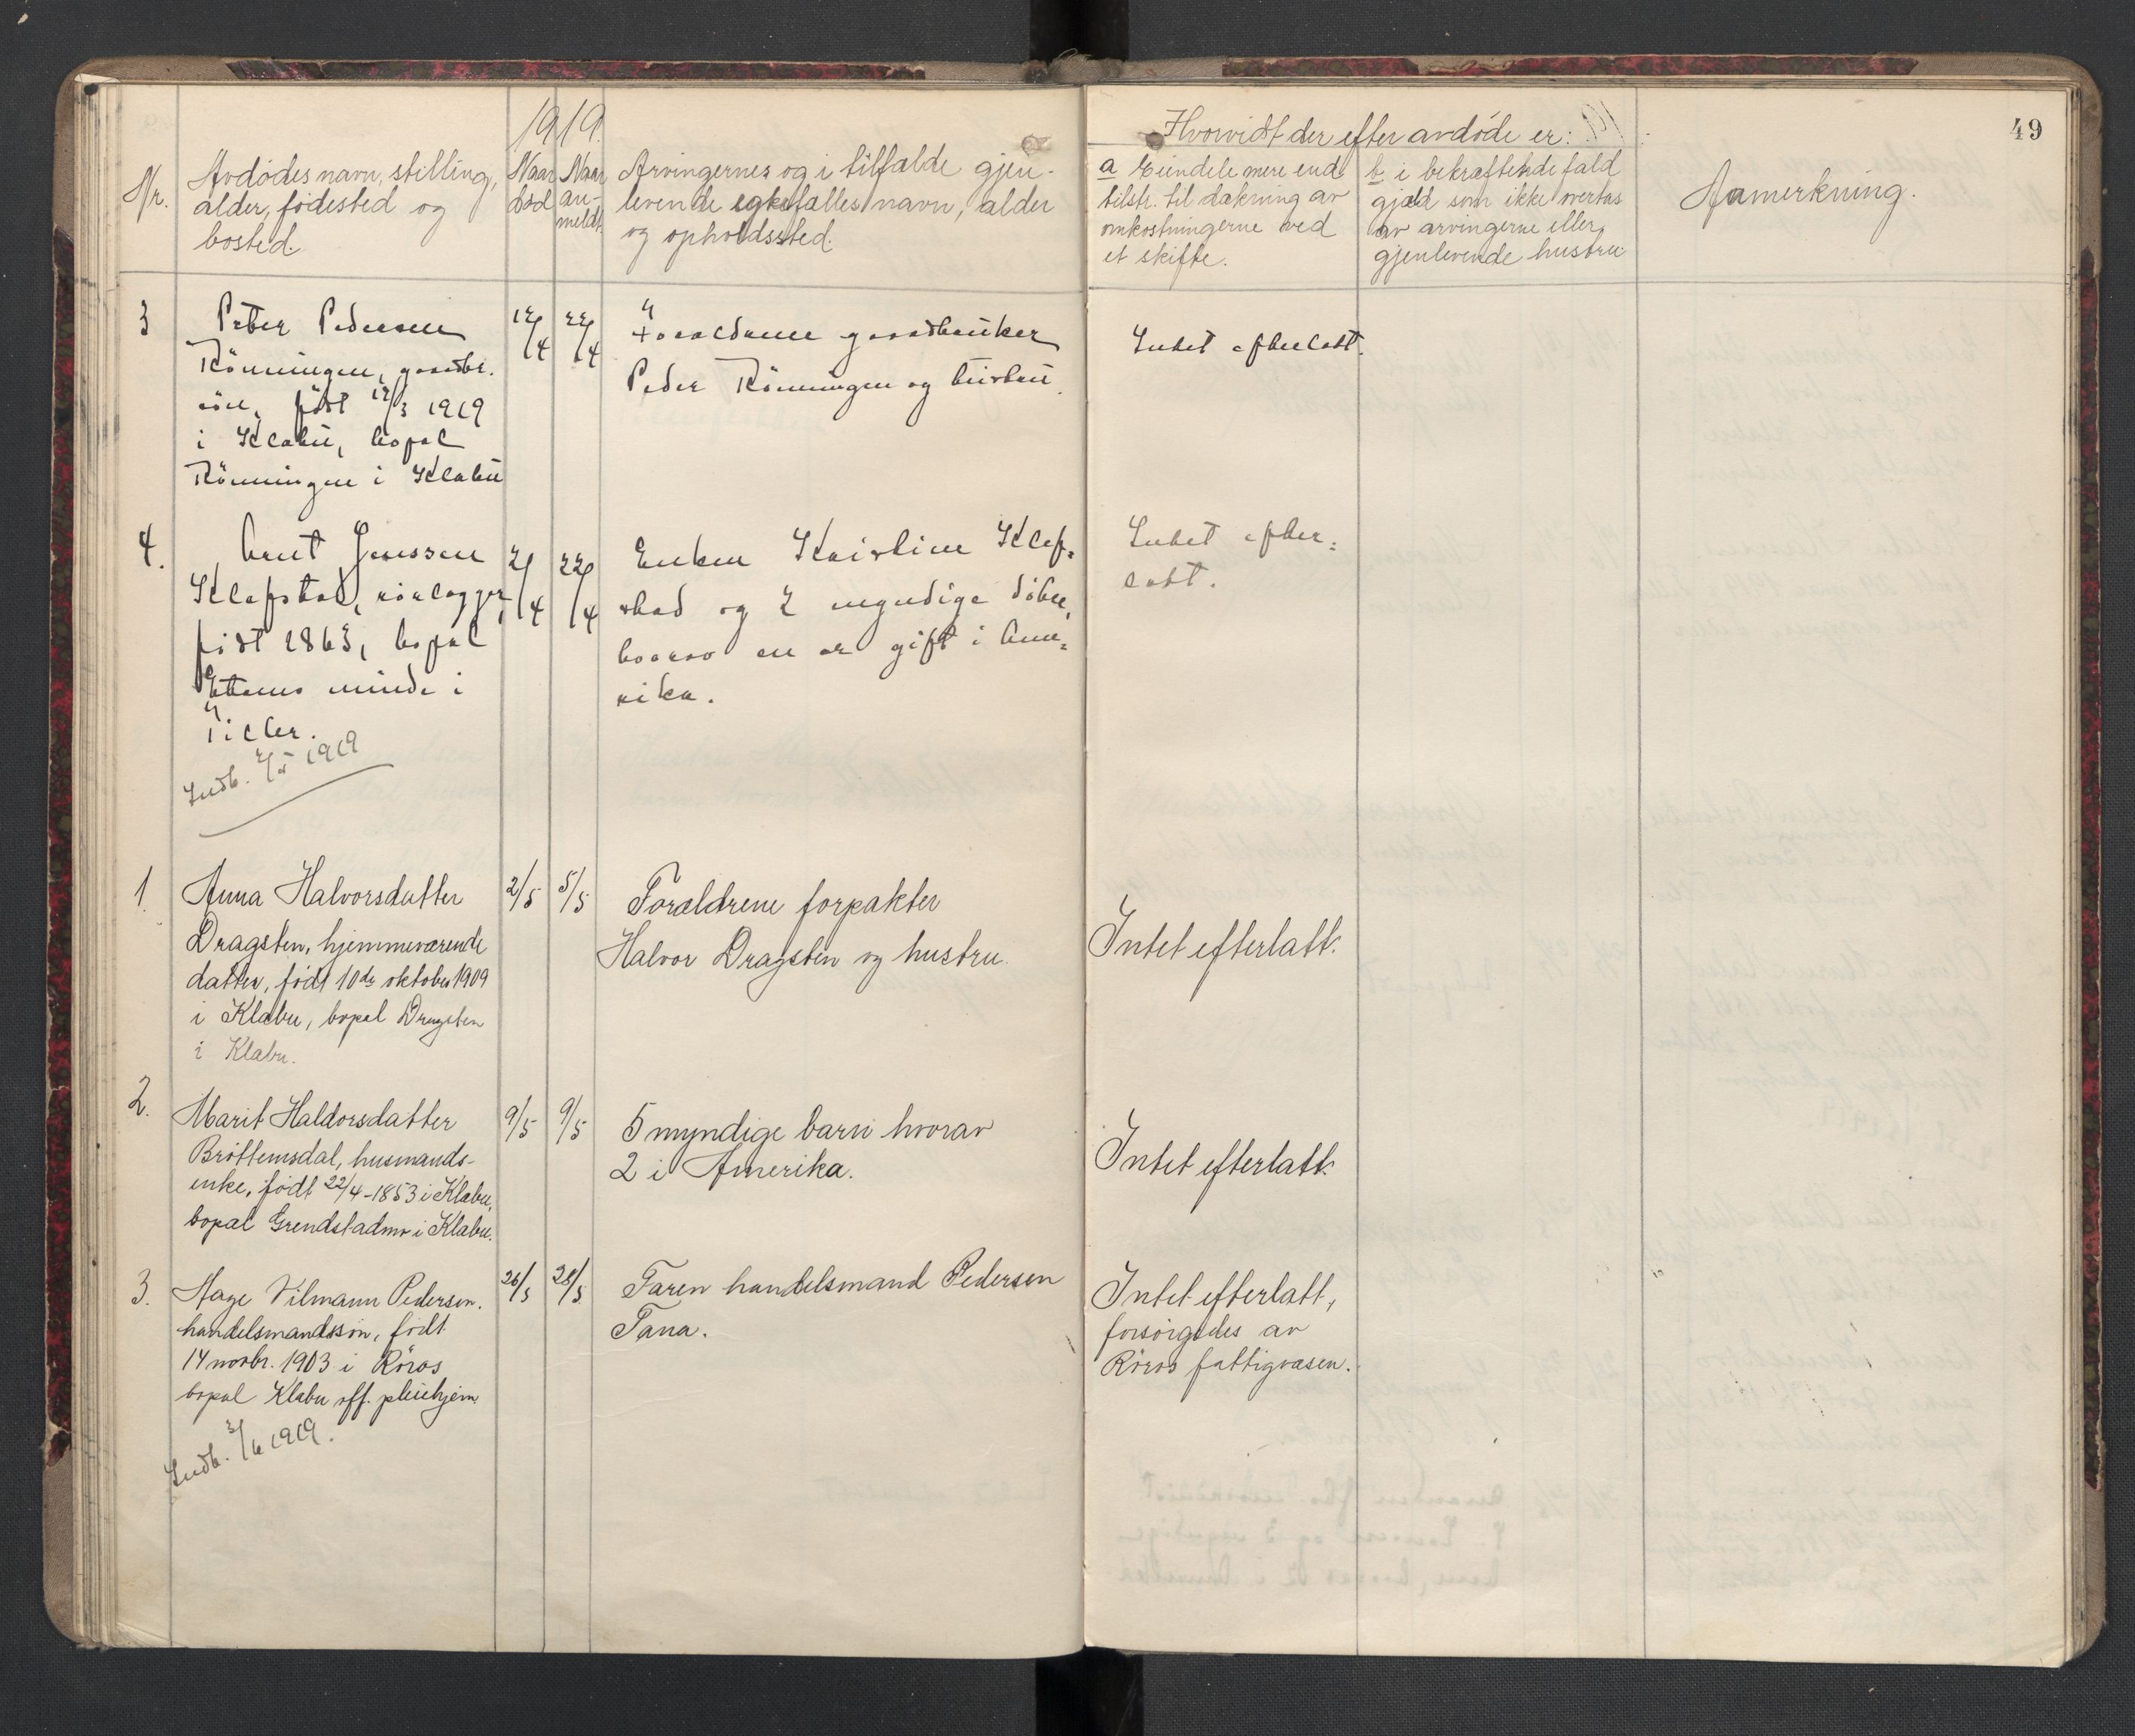 1919
49
Nr.
Avdödes navn, stilling,
alder, födested og
bosted.
Naar
död
Naar
an-
meldt.
Arvingernes og i tilfælde gjen-
levende egtefælles navn, alder
og opholdssted.
Hvorvidt der efter avdöde er:
a Eiendele mere end
tilstr. til dækning av
omkostningerne ved
et skifte.
b i bekræftende fald
gjæld som ikke overtas
av arvingerne eller
gjenlevende hustru
Anmerkning.
3
Peter Pedersen
Rönningen, gaardbr.
sön, födt 12/3 1919
i Klæbu, bopæl
Rönningen i Klæbu
12/4
22/4
Forældrene gaardbruker
Peder Rönningen og hustru
Intet efterlatt.
4.
Arnt Jenssen
Klefstad, rörlægger,
födt 1863, bopæl
minde i
Tiller.
2/4
22/4
Enken Kristine Klef-
stad og 2 myndige döttre,
hvorav en er gift i Ame-
rika.
Intet efter-
latt.
Indb. 2/5 1919
1.
Anna Halvorsdatter
Dragsten, hjemmeværende
datter, födt 10de oktober 1909
i Klæbu, bopæl Dragsten
i Klæbu.
2/5
5/5
Forældrene forpakter
Halvor Dragsten og hustru.
Intet efterlatt.
2.
Marit Haldorsdatter
Bröttemsdal, husmands-
enke, födt 22/4-1853 i Klæbu,
bopæl Grendstadmo i Klæbu.
9/5
9/5
5 myndige barn hvorav
2 i Amerika.
Intet efterlatt.
3.
Aage Vilmann Pedersen.
handelsmandssön, födt
14 novbr. 1903 i Röros
bopæl Klæbu off. pleiehjem
26/5
28/5
Faren handelsmand Pedersen
Tana.
Intet efterlatt,
forsörgedes av
Röros fattigvæsen.
Indb. 3/6 1919.